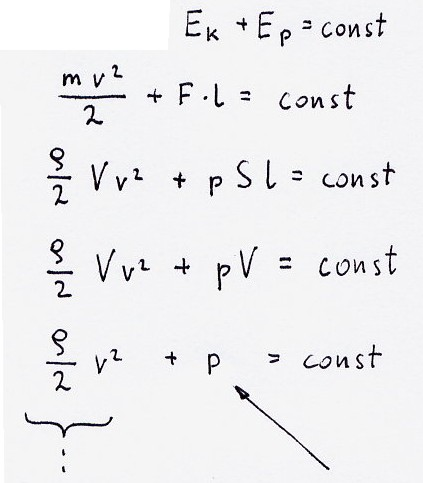 E_k + E_p = const
m v² / 2 + F · l = const
ρ/2 V v² + p S l = const
ρ/2 V v² + p V = const
ρ/2 v² + p = const